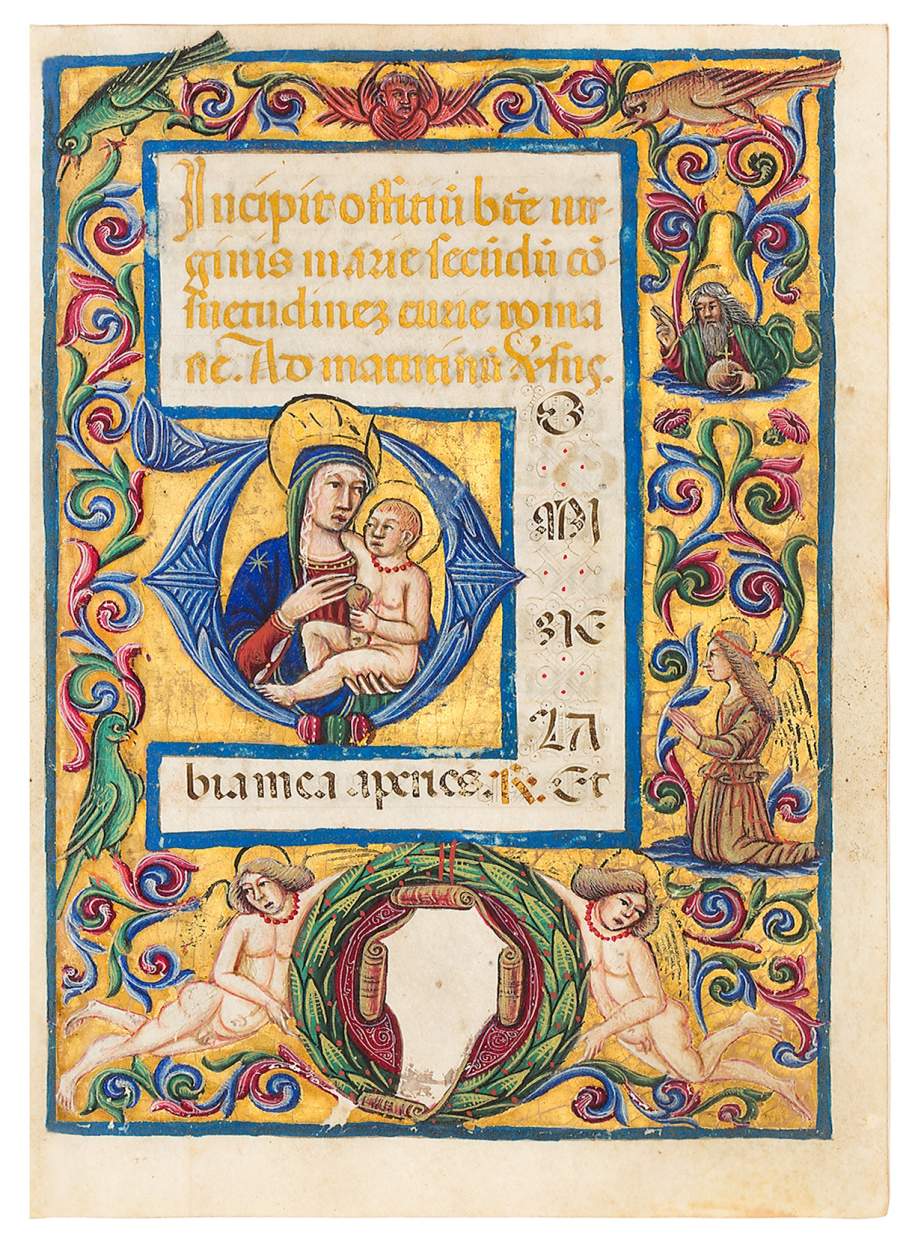 Incipit offitiū btē uir-
ginis marie secūdū cō-
suetudinez curie roma
ne. Ad matutinū Ꝟsus.
O
MI
NE
LA
bia mea aperies. ℟. Et